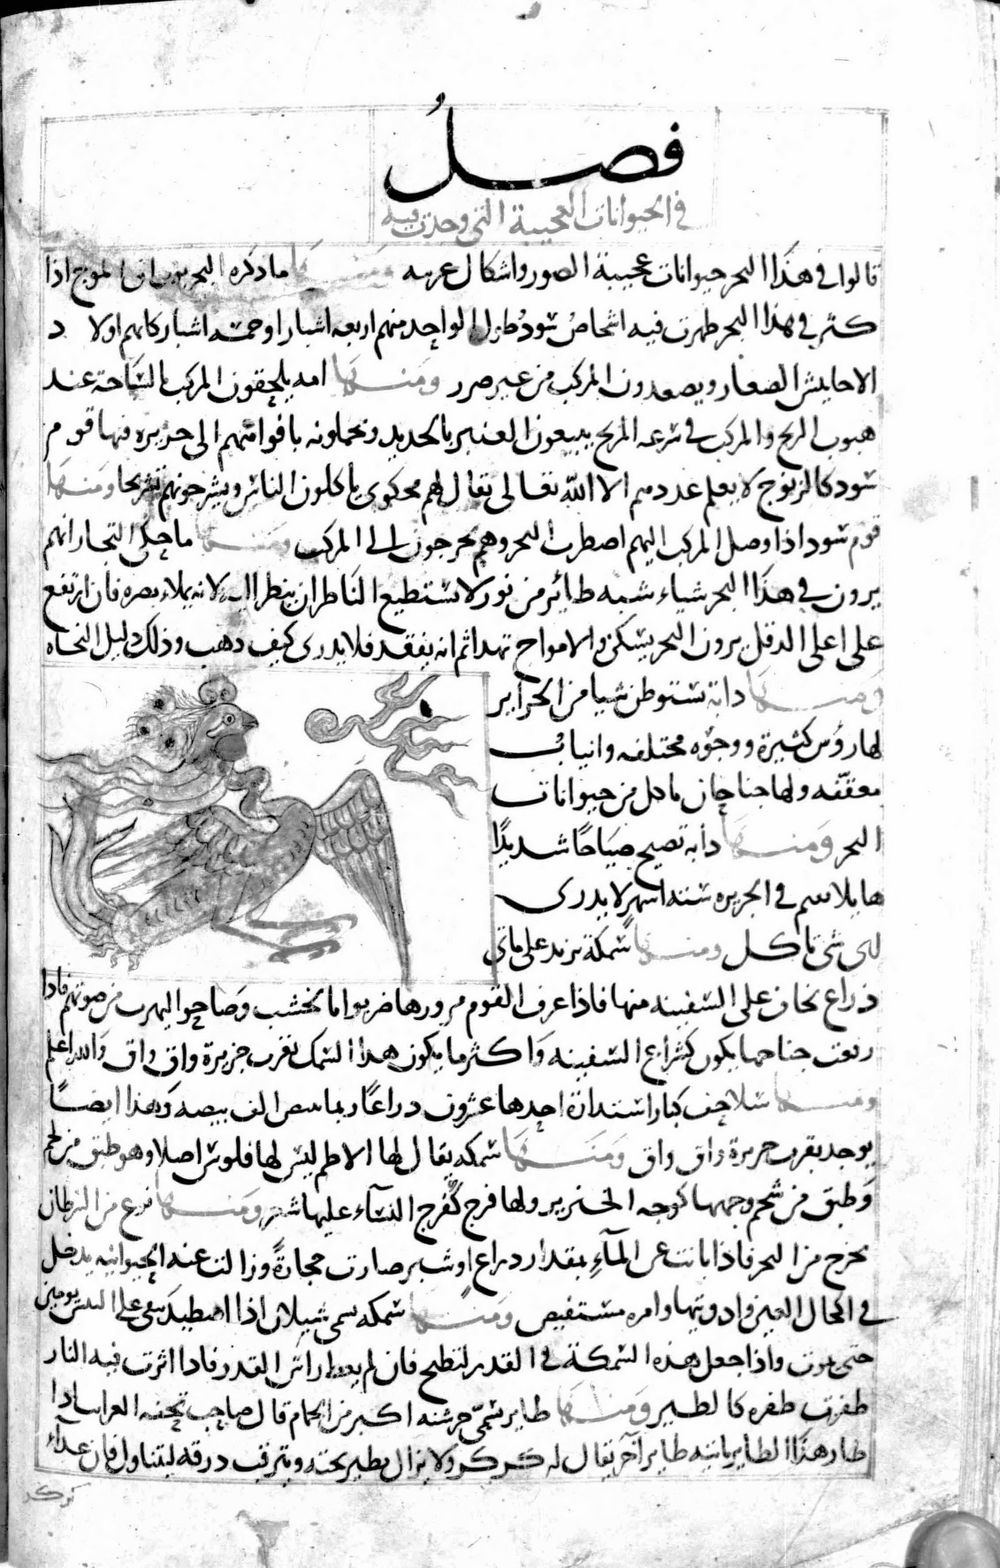 فصل
في الحيوانات العجيبة التي وجدت فيه
قالوا في هذا البحر حيوانات عجيبة الصور واشكال غريبه ومنها ما ذكره البحريون ان الموج اذا
كثر في هذا البحر ظهرت فيه اشخاص سود طول الواحد منهم اربعه اشبار او خمسه اشبار كانهم اولاد
الاحابيش الصغار ويصعدون المركب من غير ضرر ومنها امه يلحقون المركب بالسباحة عند
هبوب الريح والمركب في سرعه الريح يبيعون العنبر بالحديد ويحملونه بافواههم الى جزيره فيها قوم
سود كالزنوج لا يعلم عددهم الا الله تعالى يقال لهم ياكلون الناس ويشرحونهم تشريحا ومنها
قوم سود اذا وصل المركب اليهم اضطرب البحر وهم يخرجون الى المركب ومنها ما حكى التجار انهم
يرون في هذا البحر شياء شبه طائر من نور لا يستطيع الناظر ان ينظر اليه لانه يملاء بصره فان ارتفع
على اعلى الدقل يرون البحر يسكن والامواج تهدا ثم انه يفقد فلا يدرى كيف ذهب وذلك دليل النجاه
ومنها دابة تستوطن شيا من الجزاير
لها رؤس كثيرة ووجوه مختلفه وانياب
معقفه ولها جناحان تاكل من حيوانات
البحر ومنها دابه تصيح صياحا شديدا
هايلا في الجزيره ستة اشهر لا يدرى
اى شى تاكل ومنها سمكة تزيد على ماتى
ذراع يخاف على السفينه منها فاذا عرف القوم مرورها ضربوا بالخشب وصاحوا ليهرب من صوتهم فاذا
رفعت جناحها يكون كشراع السفينه واكثر ما يكون هذا السمك بقرب جزيرة واق واق والله اعلم
ومنها سلاحف كبار استدارة احدها عشرون ذراعا ربما تبيض الف بيضه وهذا ايضا
يوجد بقرب جزيرة واق واق ومنها سمكه يقال لها الاطم ليس لها فلوس اصلا وهو طبق من لحم
وطبق من شحم وجهها كوجه الخنزير ولها فرج كفرج النساء عليها شعر ومنها نوع من السرطان
يخرج من البحر فاذا بانت عن الماء بمقدار ذراع او شبر صارت حجارة وزالت عنه الحيوانيه يدخل
في اكحال العين وادويتها وامره مستفيض ومنها سمكه تسمى شيلان اذا اصطيد بقى على اليبس يومين
حتى يموت واذا جعل هذه السمكة في القدر لتطبخ فان لم يغط راس القدر فاذا اثرت فيه النار
طفرت طفره كالطير ومنها طاير يسمى خرشنه اكبر من الحمام قال صاحب تحفه الغرايب اذا
طار هذا الطاير ياتيه طايرا آخر يقال له كركر ولا يزال يطير تحته ويترقب ذرقه ليتناول فان غذاء
كركر